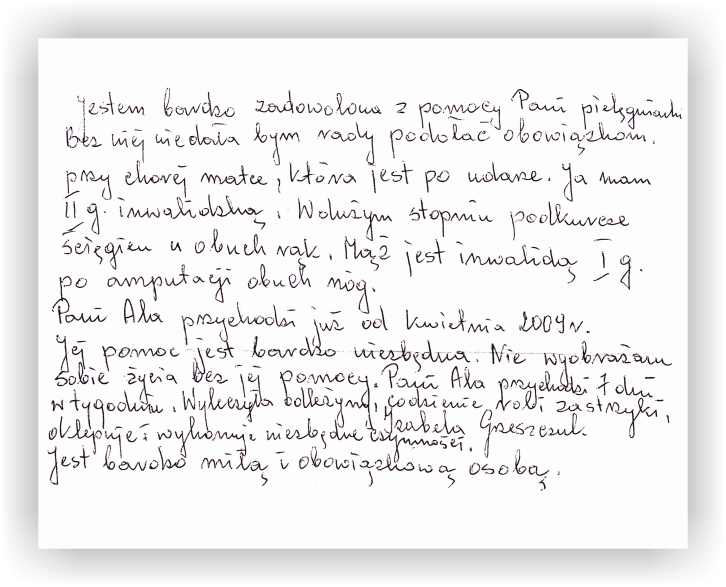 Jestem bardzo zadowolona z pomocy Pani pielęgniarki
Bez niej nie dała bym rady podołać obowiązkom.
przy chorej matce, która jest po udarze. Ja mam
II g. inwalidzką. W dużym stopniu podkurcze
ścięgien u obuch rąk. Mąż jest inwalidą I g.
po amputacji obuch nóg.
Pani Ala przychodzi już od kwietnia 2009 r.
Jej pomoc jest bardzo niezbędna. Nie wyobrażam
sobie życia bez jej pomocy. Pani Ala przychodzi 7 dni
w tygodniu. Wyleczyła odleżyny, codzienie robi zastrzyki,
oklepuje i wykonuje niezbędne czynności. Izabela
Jest bardzo miłą i obowiązkową osobą.